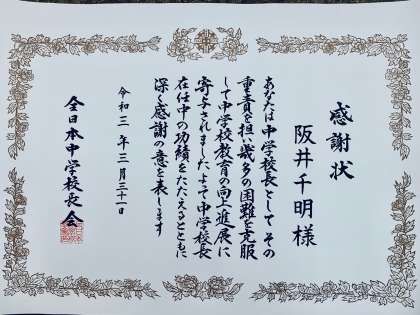 感謝状
阪井千明様
あなたは中学校長としてその
重責を担い幾多の困難を克服
して中学校教育の向上進展に
寄与されましたよって中学校長
在任中の功績をたたえるとともに
深く感謝の意を表します
令和三年三月三十一日
全日本中学校長会